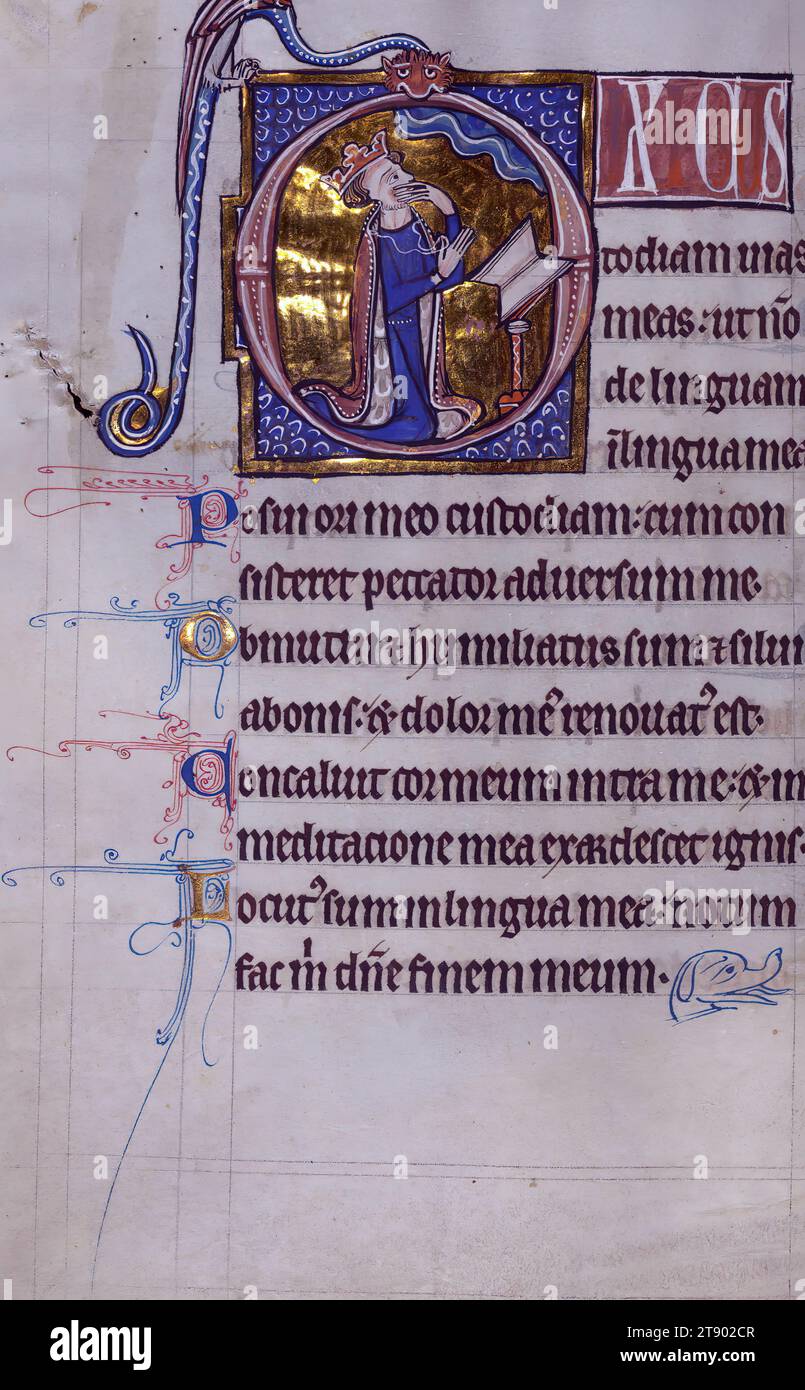 DIXI CUS
todiam uias
meas : ut nō
de linguam
ī lingua mea
Posui ori meo custodiam : cum con
sisteret peccator aduersum me.
Obmutui & humiliatus sum & silui
a bonis : & dolor meꝰ renouatꝰ est.
Concaluit cor meum intra me : & in
meditacione mea exardescet ignis.
Locutꝰ sum in lingua mea : notum
fac m dn̄e finem meum.
alamy
alamy
Image ID: 2T902CR
www.alamy.com